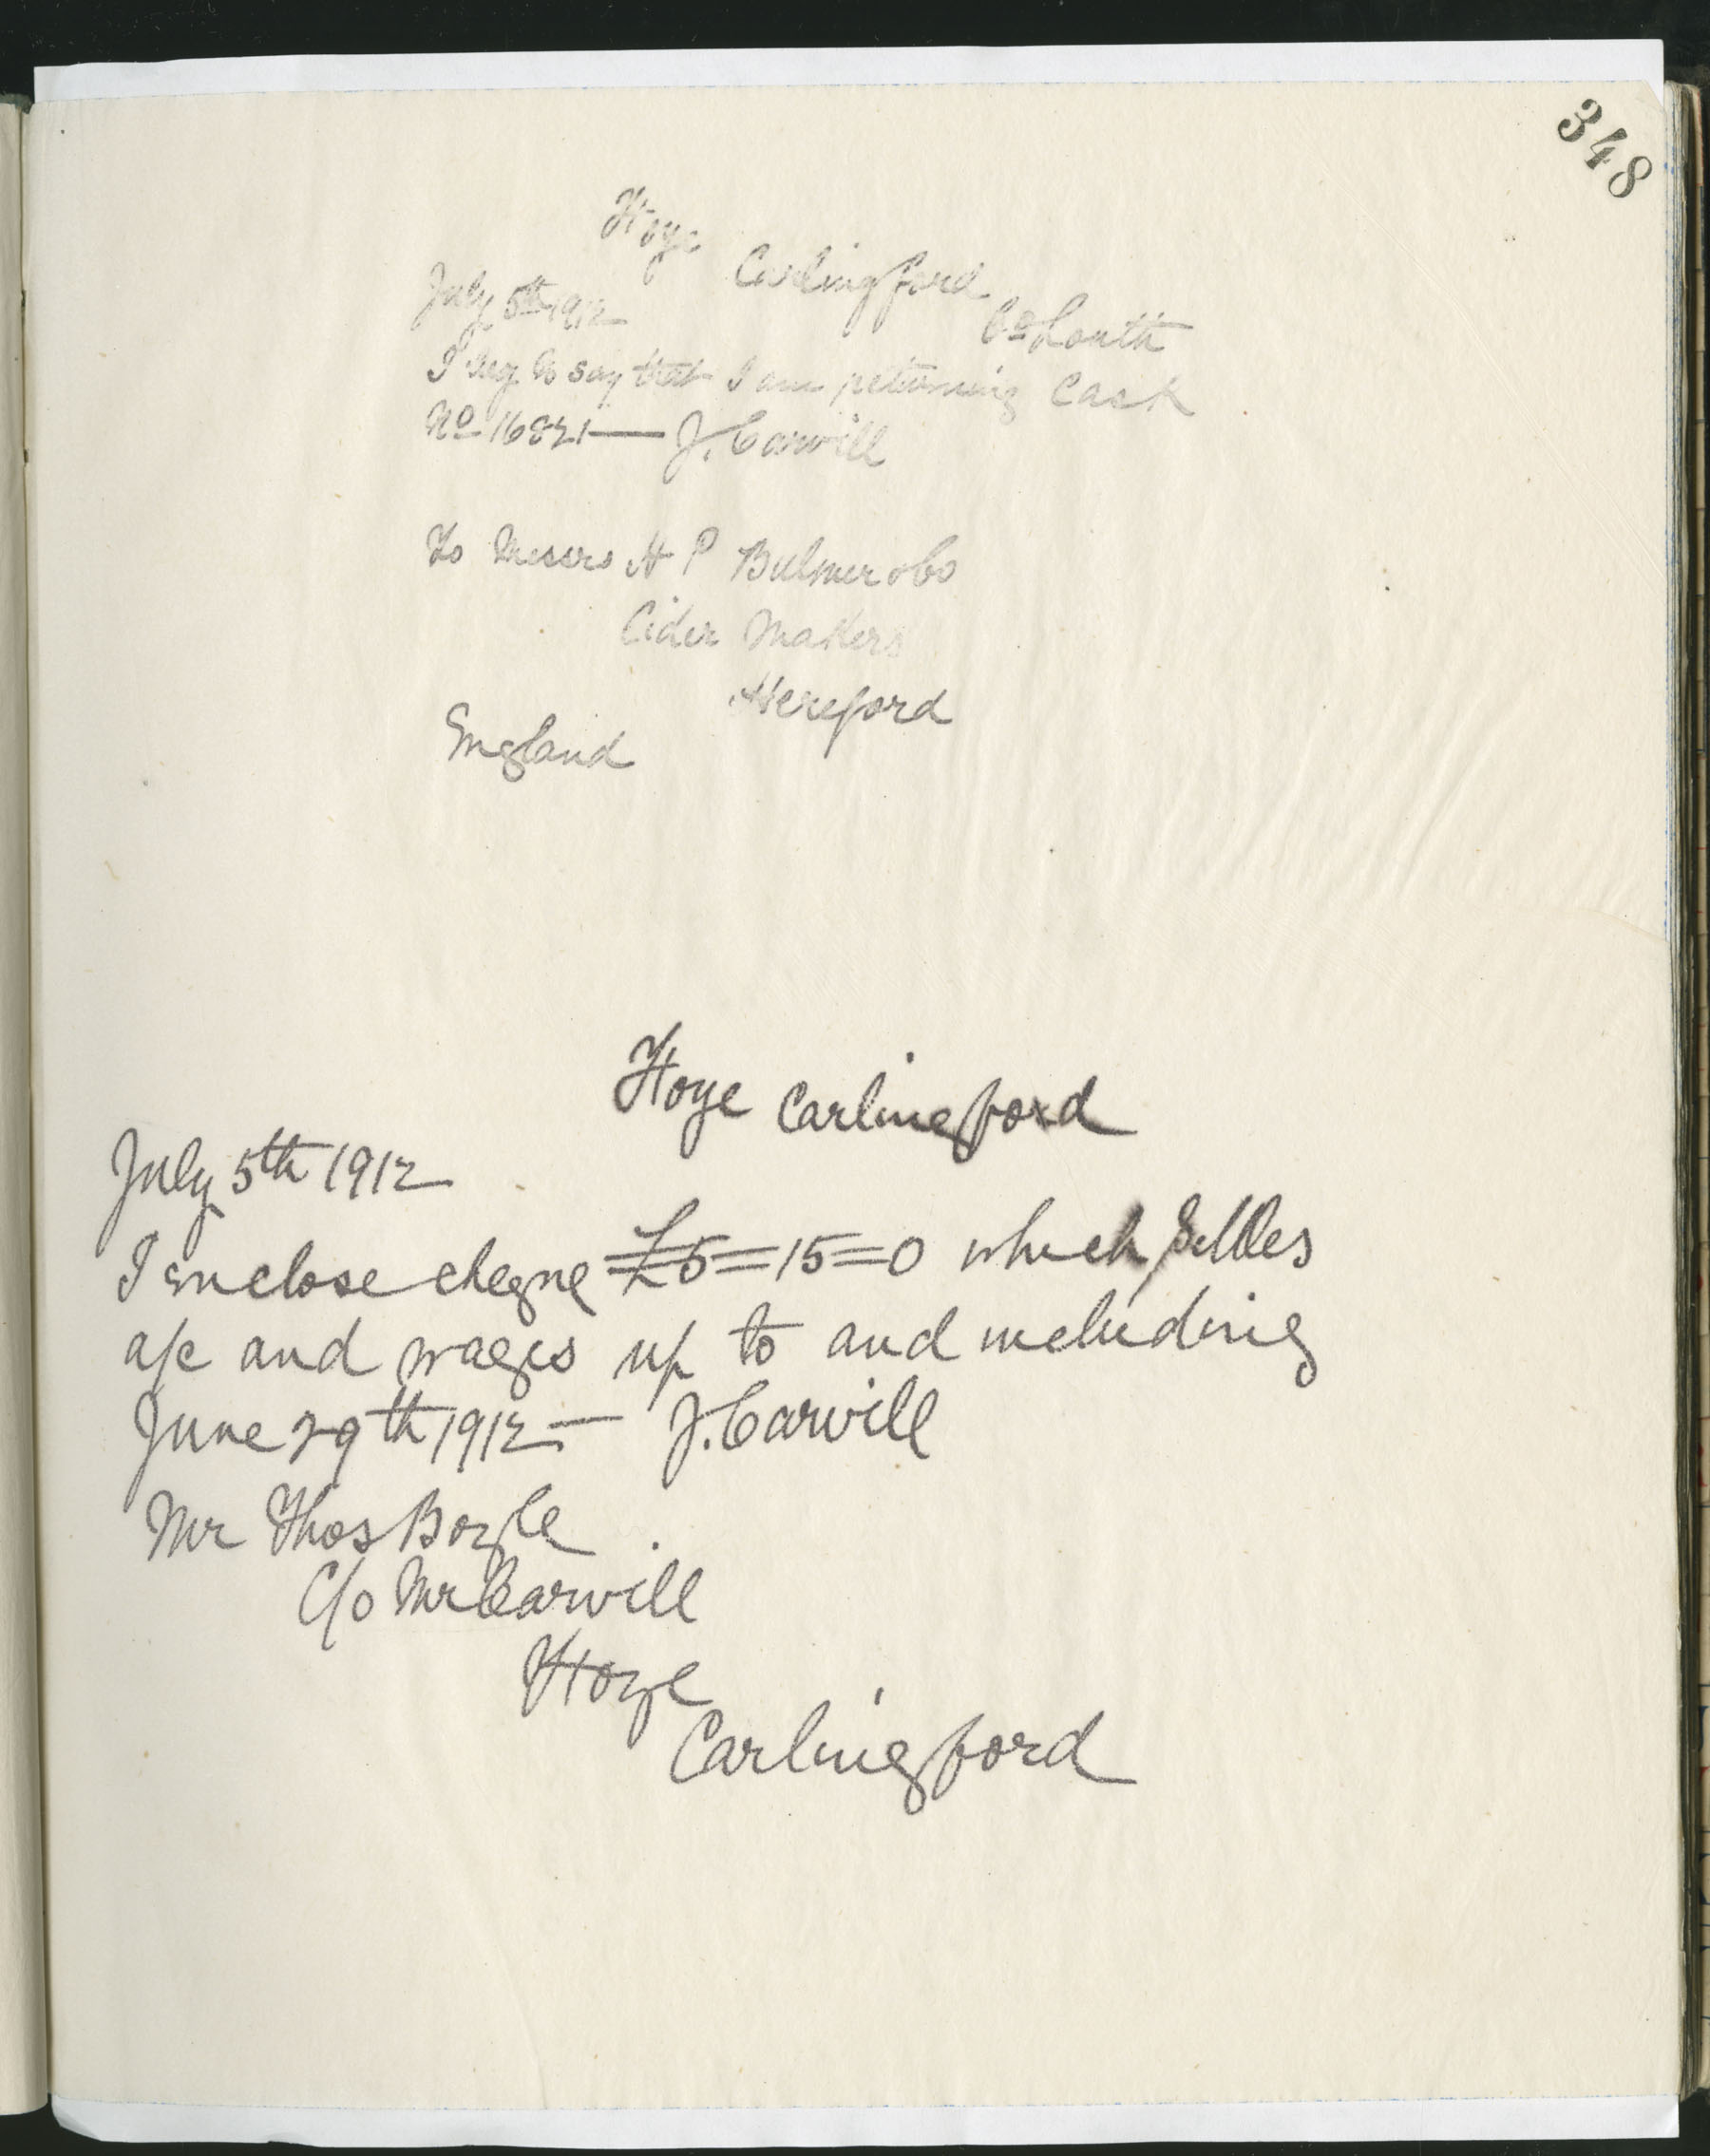 348
Hoye
Carlingford
Co Louth
July 5th 1912
I beg to say that I am returning Cask
No 16821 — J. Carvill
To Messrs H P Bulmer & Co
Cider Makers
Hereford
England
Hoye Carlingford
July 5th 1912
I enclose cheque £5=15=0 which Settles
a/c and wages up to and including
June 29th 1912 — J. Carvill
Mr Thos Boyle
C/o Mr Carvill
Hoye
Carlingford